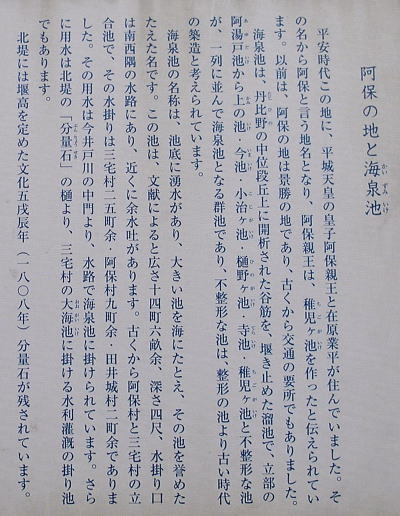 阿保の地と海泉池
平安時代この地に、平城天皇の皇子阿保親王と在原業平が住んでいました。そ
の名から阿保と言う地名となり、阿保親王は、稚児ヶ池を作ったと伝えられてい
ます。以前は、阿保の地は景勝の地であり、古くから交通の要所でもありました。
海泉池は、丹比野の中位段丘上に開析された谷筋を、堰き止めた溜池で、立部の
阿湯戸池から上の池・今池・小治ヶ池・樋野ヶ池・寺池・稚児ヶ池と不整形な池
が、一列に並んで海泉池となる群池であり、不整形な池は、整形の池より古い時代
の築造と考えられています。
海泉池の名称は、池底に湧水があり、大きい池を海にたとえ、その池を誉めた
たえた名です。この池は、文献によると広さ十四町六畝余、深さ四尺、水掛り口
は南西隅の水路にあり、近くに余水吐があります。古くから阿保村と三宅村の立
合池で、その水掛りは三宅村二五町余・阿保村九町余・田井城村二町余でありま
した。その用水は今井戸川の中門より、水路で海泉池に掛けられています。さら
に用水は北堤の「分量石」の樋より、三宅村の大海池に掛ける水利灌漑の掛り池
でもあります。
北堤には堰高を定めた文化五戊辰年（一八〇八年）分量石が残されています。